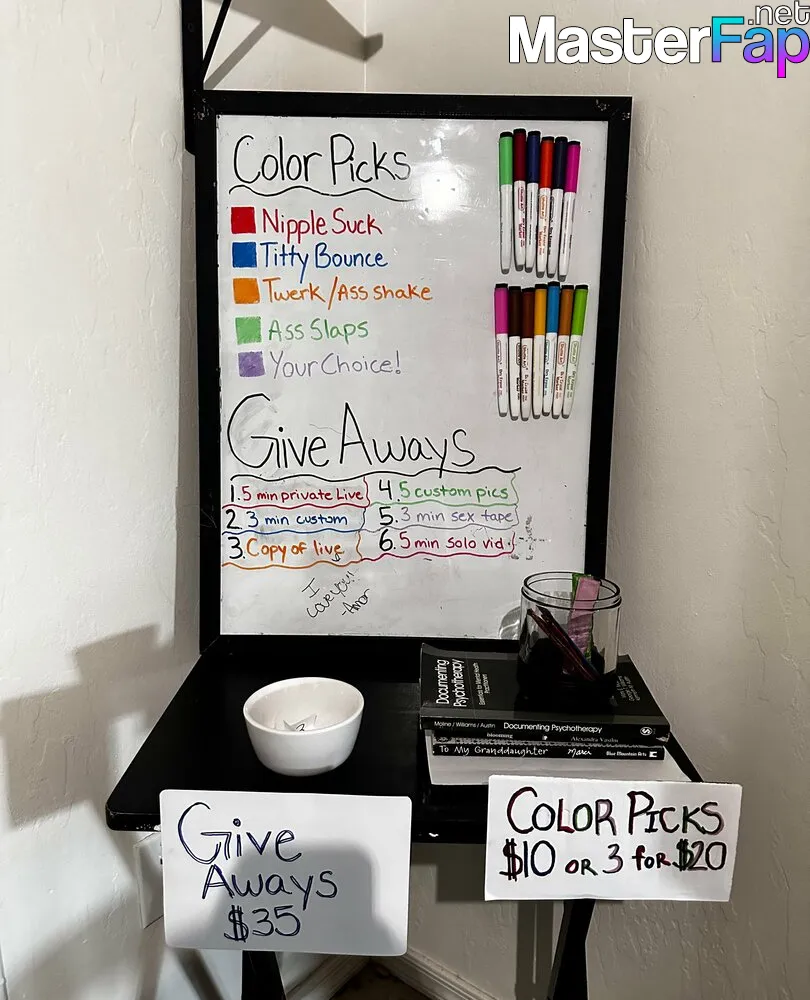 MasterFap
.net
Color Picks
Nipple Suck
Titty Bounce
Twerk/Ass shake
Ass Slaps
Your Choice!
Give Aways
1. 5 min private Live
2. 3 min custom
3. Copy of live
4. 5 custom pics
5. 3 min sex tape
6. 5 min solo vid
I
Love you!
-Amor
Documenting
Psychotherapy
Moline / Williams / Austin Documenting Psychotherapy
blooming Alexandra Vasiliu
To My Granddaughter Blue Mountain Arts
Give
Aways
$35
COLOR PICKS
$10 OR 3 FOR $20